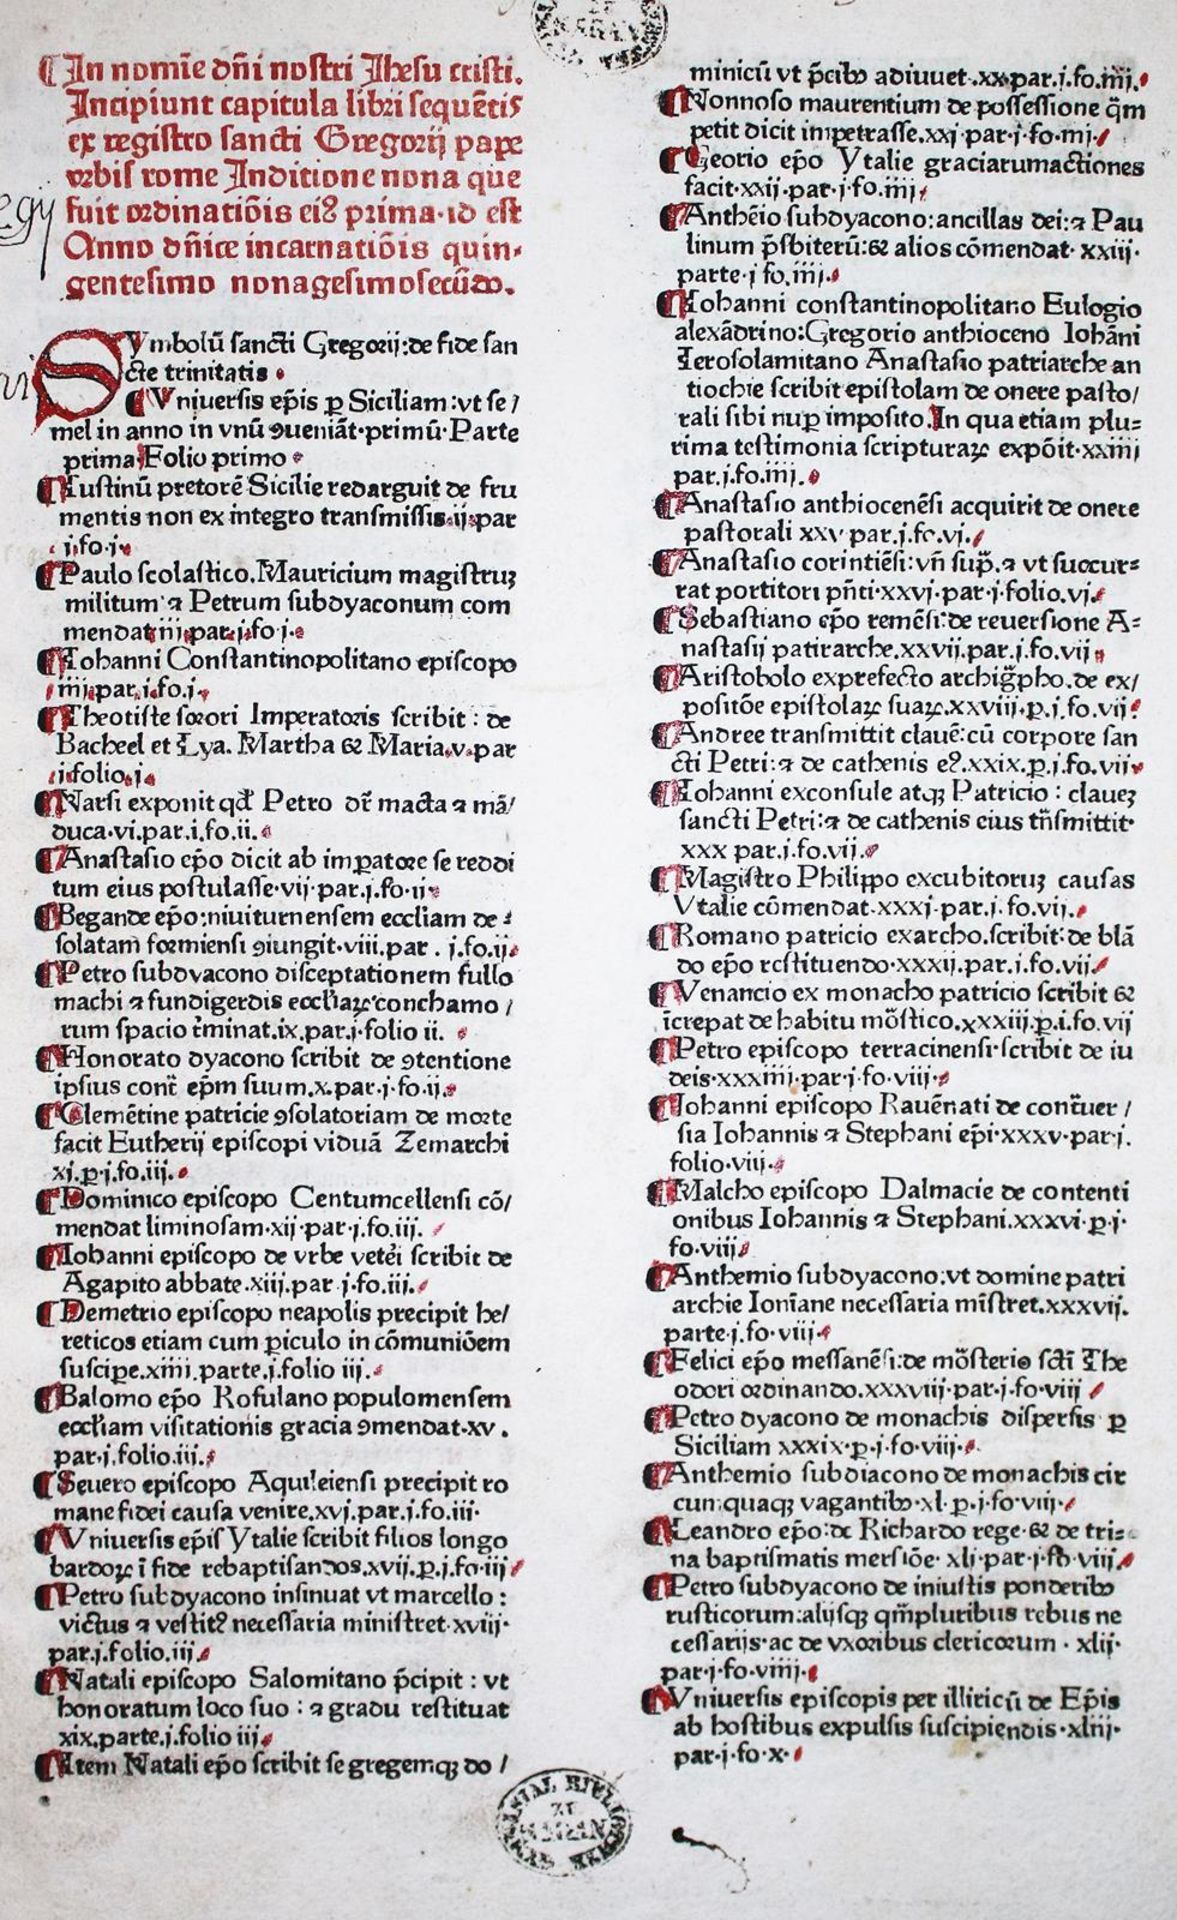 ¶In nomīe dn̄i nostri Ihesu cristi.
Incipiunt capitula libri sequētis
ex registro sancti Gregorij pape
vrbis rome Inditione nona que
fuit ordinatiōis eiꝰ prima·id est
Anno dn̄ice incarnatiōis quin-
gentesimo nonagesimosecūdo.
SYmbolū sancti Gregorij:de fide san
cte trinitatis
¶Vniuersis ep̄is ꝑ Siciliam:vt se/
mel in anno in vnū ꝯueniāt·primū·Parte
prima Folio primo
¶Iustinū pretorē Sicilie redarguit de fru
mentis non ex integro transmissis.ij.par
j.fo.j.
¶Paulo scolastico.Mauricium magistruꝫ
militum ⁊ Petrum subdyaconum com
mendat.iij.par.j.fo.j.
¶Iohanni Constantinopolitano episcopo
iiij.par.j.fo.j.
¶Theotiste sorori Imperatoris scribit : de
Bacheel et Lya. Martha & Maria.v.par
j.folio.j.
¶Narsi exponit qd̄ Petro dr̄ macta ⁊ mā/
duca·vi.par.i.fo.ii.
¶Anastasio ep̄o dicit ab imꝑatore se reddi
tum eius postulasse·vij·par.j.fo·ij
¶Begande ep̄o:niuiturnensem eccliam de-
solatam formiensi ꝯiungit·viii.par . j.fo.ij.
¶Petro subdyacono disceptationem fullo
machi ⁊ fundigerdis eccl̄iaꝝ conchamo /
rum spacio t̄minat.ix.par.j·folio ii.
¶Honorato dyacono scribit de ꝯtentione
ipsius cont̄ ep̄m suum.x.par·j·fo·ij.
¶Clemētine patricie ꝯsolatoriam de morte
facit Eutherij episcopi viduā Zemarchi
xj.ꝑ·j.fo.iij.
¶Dominico episcopo Centumcellensi cō/
mendat liminosam·xij·par·j.fo.iij.
¶Iohanni episcopo de vrbe veteri scribit de
Agapito abbate.xiij.par j·fo.iij.
¶Demetrio episcopo neapolis precipit he/
reticos etiam cum ꝑiculo in cōmuniōem
suscipe.xiiij.parte.j.folio iij.
¶Balomo ep̄o Rofulano populomensem
eccl̄iam visitationis gracia ꝯmendat·xv.
par·j.folio.iij.
¶Seuero episcopo Aquileiensi precipit ro
mane fidei causa venire.xvj.par.j.fo.iij·
¶Vniuersis ep̄is Ytalie scribit filios longo
bardoꝝ ī fide rebaptisandos.xvij.ꝑ.j.fo·iij
¶Petro subdyacono insinuat vt marcello :
victus ⁊ vestitꝰ necessaria ministret·xviij·
par.j.folio.iij.
¶Natali episcopo Salomitano p̄cipit : vt
honoratum loco suo : ⁊ gradu restituat
xix.parte.j.folio iij.
¶Item Natali ep̄o scribit se gregemqꝫ do /
minicū vt p̄cibꝰ adiuuet.xx.par.j.fo.iiij.
¶Nonnoso maurentium de possessione qm̄
petit dicit impetrasse.xxj·par·j·fo·iiij·
¶Georio ep̄o Ytalie graciarumactiones
facit·xxij·par·j·fo.iiij.
¶Anthēio subdyacono:ancillas dei:⁊ Pau
linum p̄sbiterū:& alios cōmendat· xxiij·
parte·j fo.iiij.
¶Iohanni constantinopolitano Eulogio
alexādrino:Gregorio anthioceno Iohāni
Ierosolamitano Anastasio patriarche an
tiochie scribit epistolam de onere pasto/
rali sibi nuꝑ imposito.In qua etiam plu-
rima testimonia scripturaꝝ expōit·xxiiij
par.j.fo.iiij.
¶Anastasio anthiocenēsi acquirit de onere
pastorali xxv par.j.fo.vj.
¶Anastasio corintiēsi:vn̄ sup̄.⁊ vt succur-
rat portitori pn̄ti·xxvj·par·j·folio.vj.
¶Sebastiano ep̄o remēsi:de reuersione A-
nastasij patirarche.xxvij.par.j.fo.vij
¶Aristobolo exprefecto archigp̄ho.de ex/
positōe epistolaꝝ suaꝝ.xxviij.ꝑ.j.fo.vij
¶Andree transmittit clauē:cū corpore san
cti Petri:⁊ de cathenis eꝰ.xxix.ꝑ.j.fo.vij
¶Iohanni exconsule atqꝫ Patricio : claueꝫ
sancti Petri:⁊ de cathenis eius tn̄smittit·
xxx par.j.fo.vij.
¶Magistro Philippo excubitoruꝫ causas
Vtalie cōmendat·xxxj·par.j.fo.vij.
¶Romano patricio exarcho.scribit:de blā
do ep̄o restituendo·xxxij.par.j.fo.vij.
¶Venancio ex monacho patricio scribit &
īcrepat de habitu mōstico.xxxiij.ꝑ.i.fo.vij
¶Petro episcopo terracinensi·scribit de iu
deis·xxxiiij·par·j·fo·viij·
¶Iohanni episcopo Rauēnati de cont̄uer /
sia Iohannis ⁊ Stephani ep̄i·xxxv·par·j.
folio·viij·
¶Malcho episcopo Dalmacie de contenti
onibus Iohannis ⁊ Stephani.xxxvi·ꝑ·j·
fo·viij
¶Anthemio subdyacono:vt domine patri
archie Ionīane necessaria mīstret.xxxvij.
parte·j.fo·viij·
¶Felici ep̄o messanēsi:de mōsterio sc̄ti The
odori ordinando.xxxviij·par·j·fo·viij
¶Petro dyacono de monachis dispersis ꝑ
Siciliam xxxix·ꝑ·j·fo·viij·
¶Anthemio subdiacono de monachis cir
cumquaqꝫ vagantibꝰ·xl·ꝑ·j·fo·viij·
¶Leandro ep̄o:de Richardo rege·& de tri-
na baptismatis mersiōe· xlj·par·j·fo·viij.
¶Petro subdyacono de iniustis ponderibꝰ
rusticorum:alijsqꝫ qm̄pluribus rebus ne
cessarijs·ac de vxoribus clericorum · xlij·
par·j·fo·viiij·
¶Vniuersis episcopis per illiricū de Ep̄is
ab hostibus expulsis suscipiendis·xliij·
par·j·fo·x·